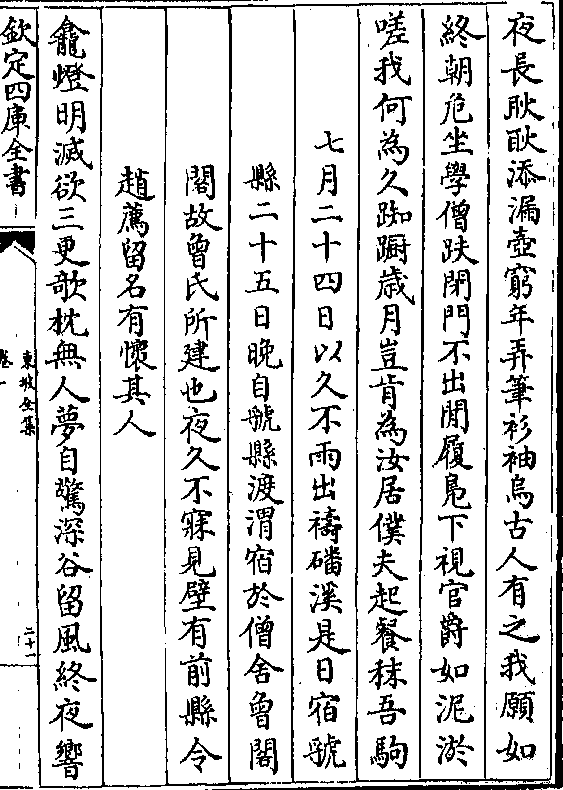 夜長耿耿添漏壺窮年弄筆衫袖烏古人有之我願如
終朝危坐學僧趺閉門不出閒履鳧下視官爵如泥淤
嗟我何為久踟蹰歲月豈肯為汝居僕夫起餐秣吾駒
七月二十四日以久不雨出禱磻溪是日宿虢
縣二十五日晚自虢縣渡渭宿於僧舍曾閣
閣故曾氏所建也夜久不寐見壁有前縣令
趙薦留名有懷其人
龕燈明滅欲三更欹枕無人夢自驚深谷留風終夜響
欽定四庫全書
東坡全集
卷一
二十一